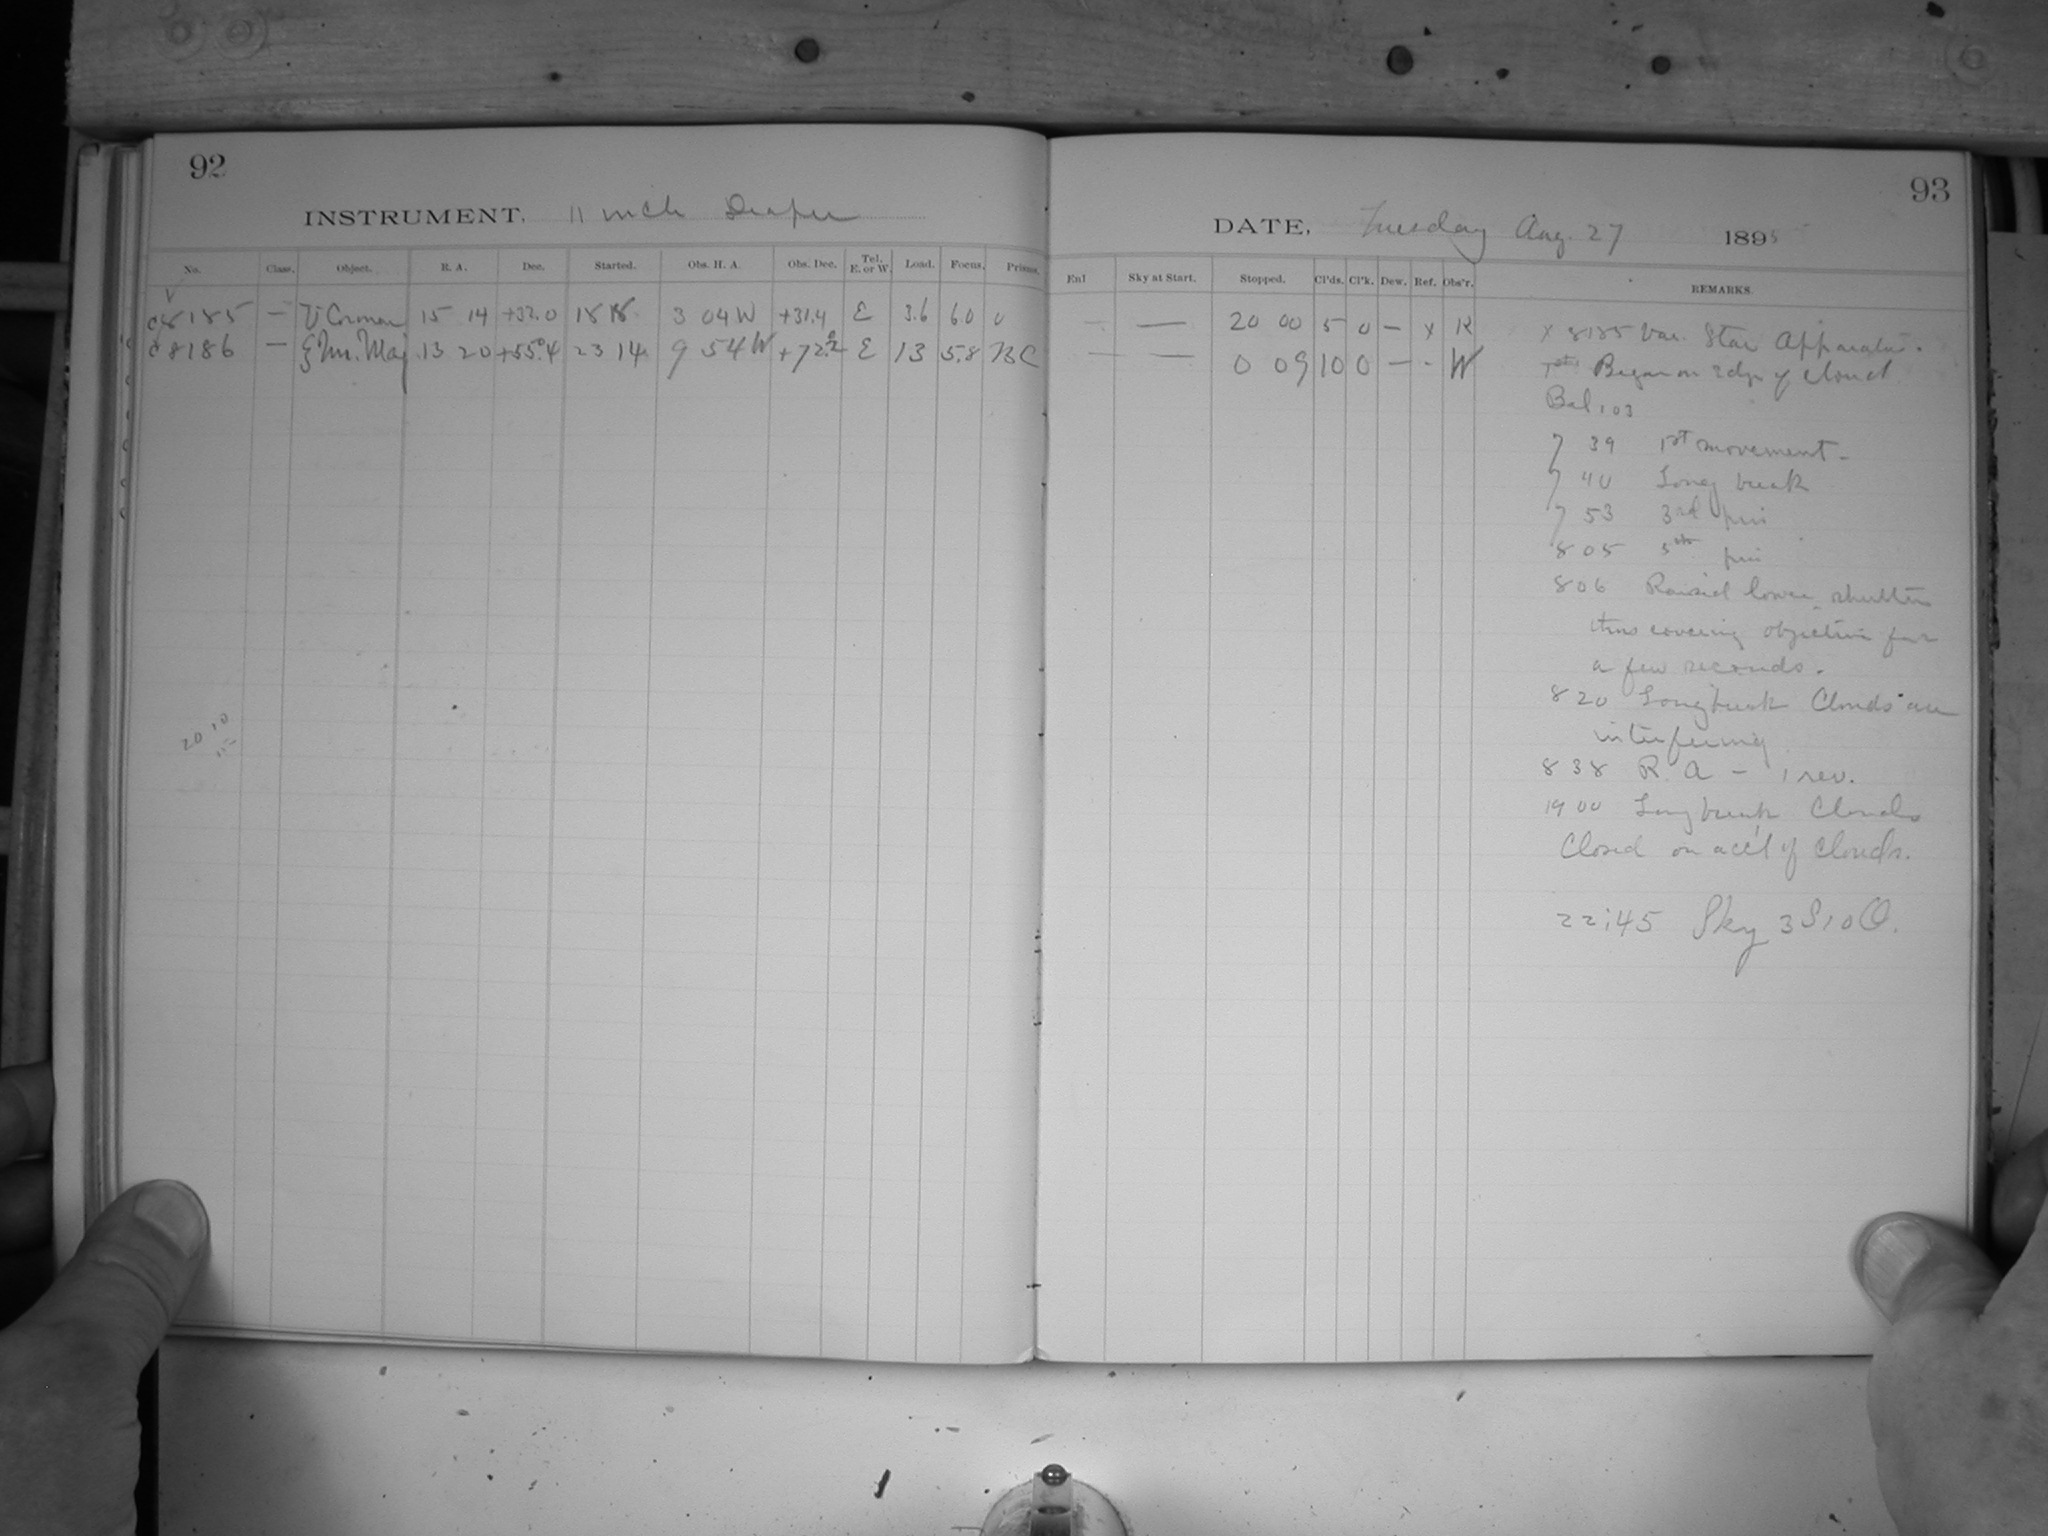 92
INSTRUMENT, 11 inch Draper
No. Class. Object. R. A. Dec. Started. Obs. H. A. Obs. Dec. Tel. E. or W. Load. Focus. Prisms.
c8185 — U Coronae 15 14 +32.0 18 18 3 04 W +31.4 E 3.6 6.0 0
c8186 — ζ Urs. Maj 13 20 +55.4 23 14 9 54 W E 13 5.8 BC
20 10
93
DATE, Tuesday Aug. 27 1895
Enl Sky at Start. Stopped. Cl'ds. Cl'k. Dew. Ref. Obs'r. REMARKS.
— — 20 00 5 0 — x R x 8185 Var. Star Apparatus.
— — 0 09 10 0 — - W Began on edge of cloud
Bal 103
7 39 1st movement—
7 40 Long break
7 53 3rd pin
8 05 5th pin
8 06 Raised lower shutters
thus covering objective for
a few seconds.
8 20 Long break Clouds are
interfering
8 38 R. A — 1 rev.
19 00 Long break Clouds
Closed on acc't of Clouds.
22:45 Sky 3 S 10 O.